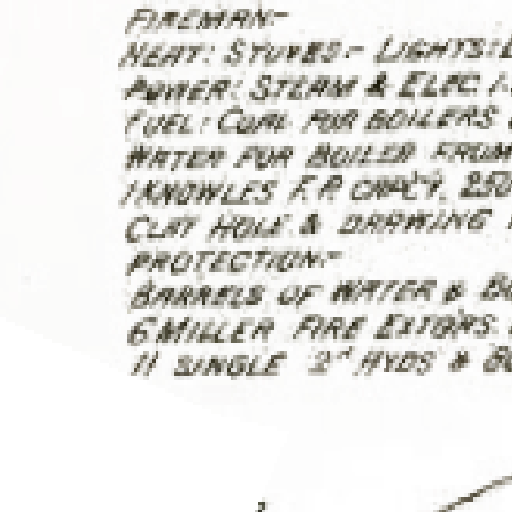 FIREMAN:-
HEAT: STOVES:- LIGHTS:
POWER: STEAM & ELEC.
FUEL: COAL FOR BOILERS
WATER FOR BOILER FROM
1 KNOWLES F.P. CAP'C'Y. 250
CLAY HOLE & DRAWING
PROTECTION:-
BARRELS OF WATER &
6 MILLER FIRE EXTGRS.
11 SINGLE 2" HYDS &